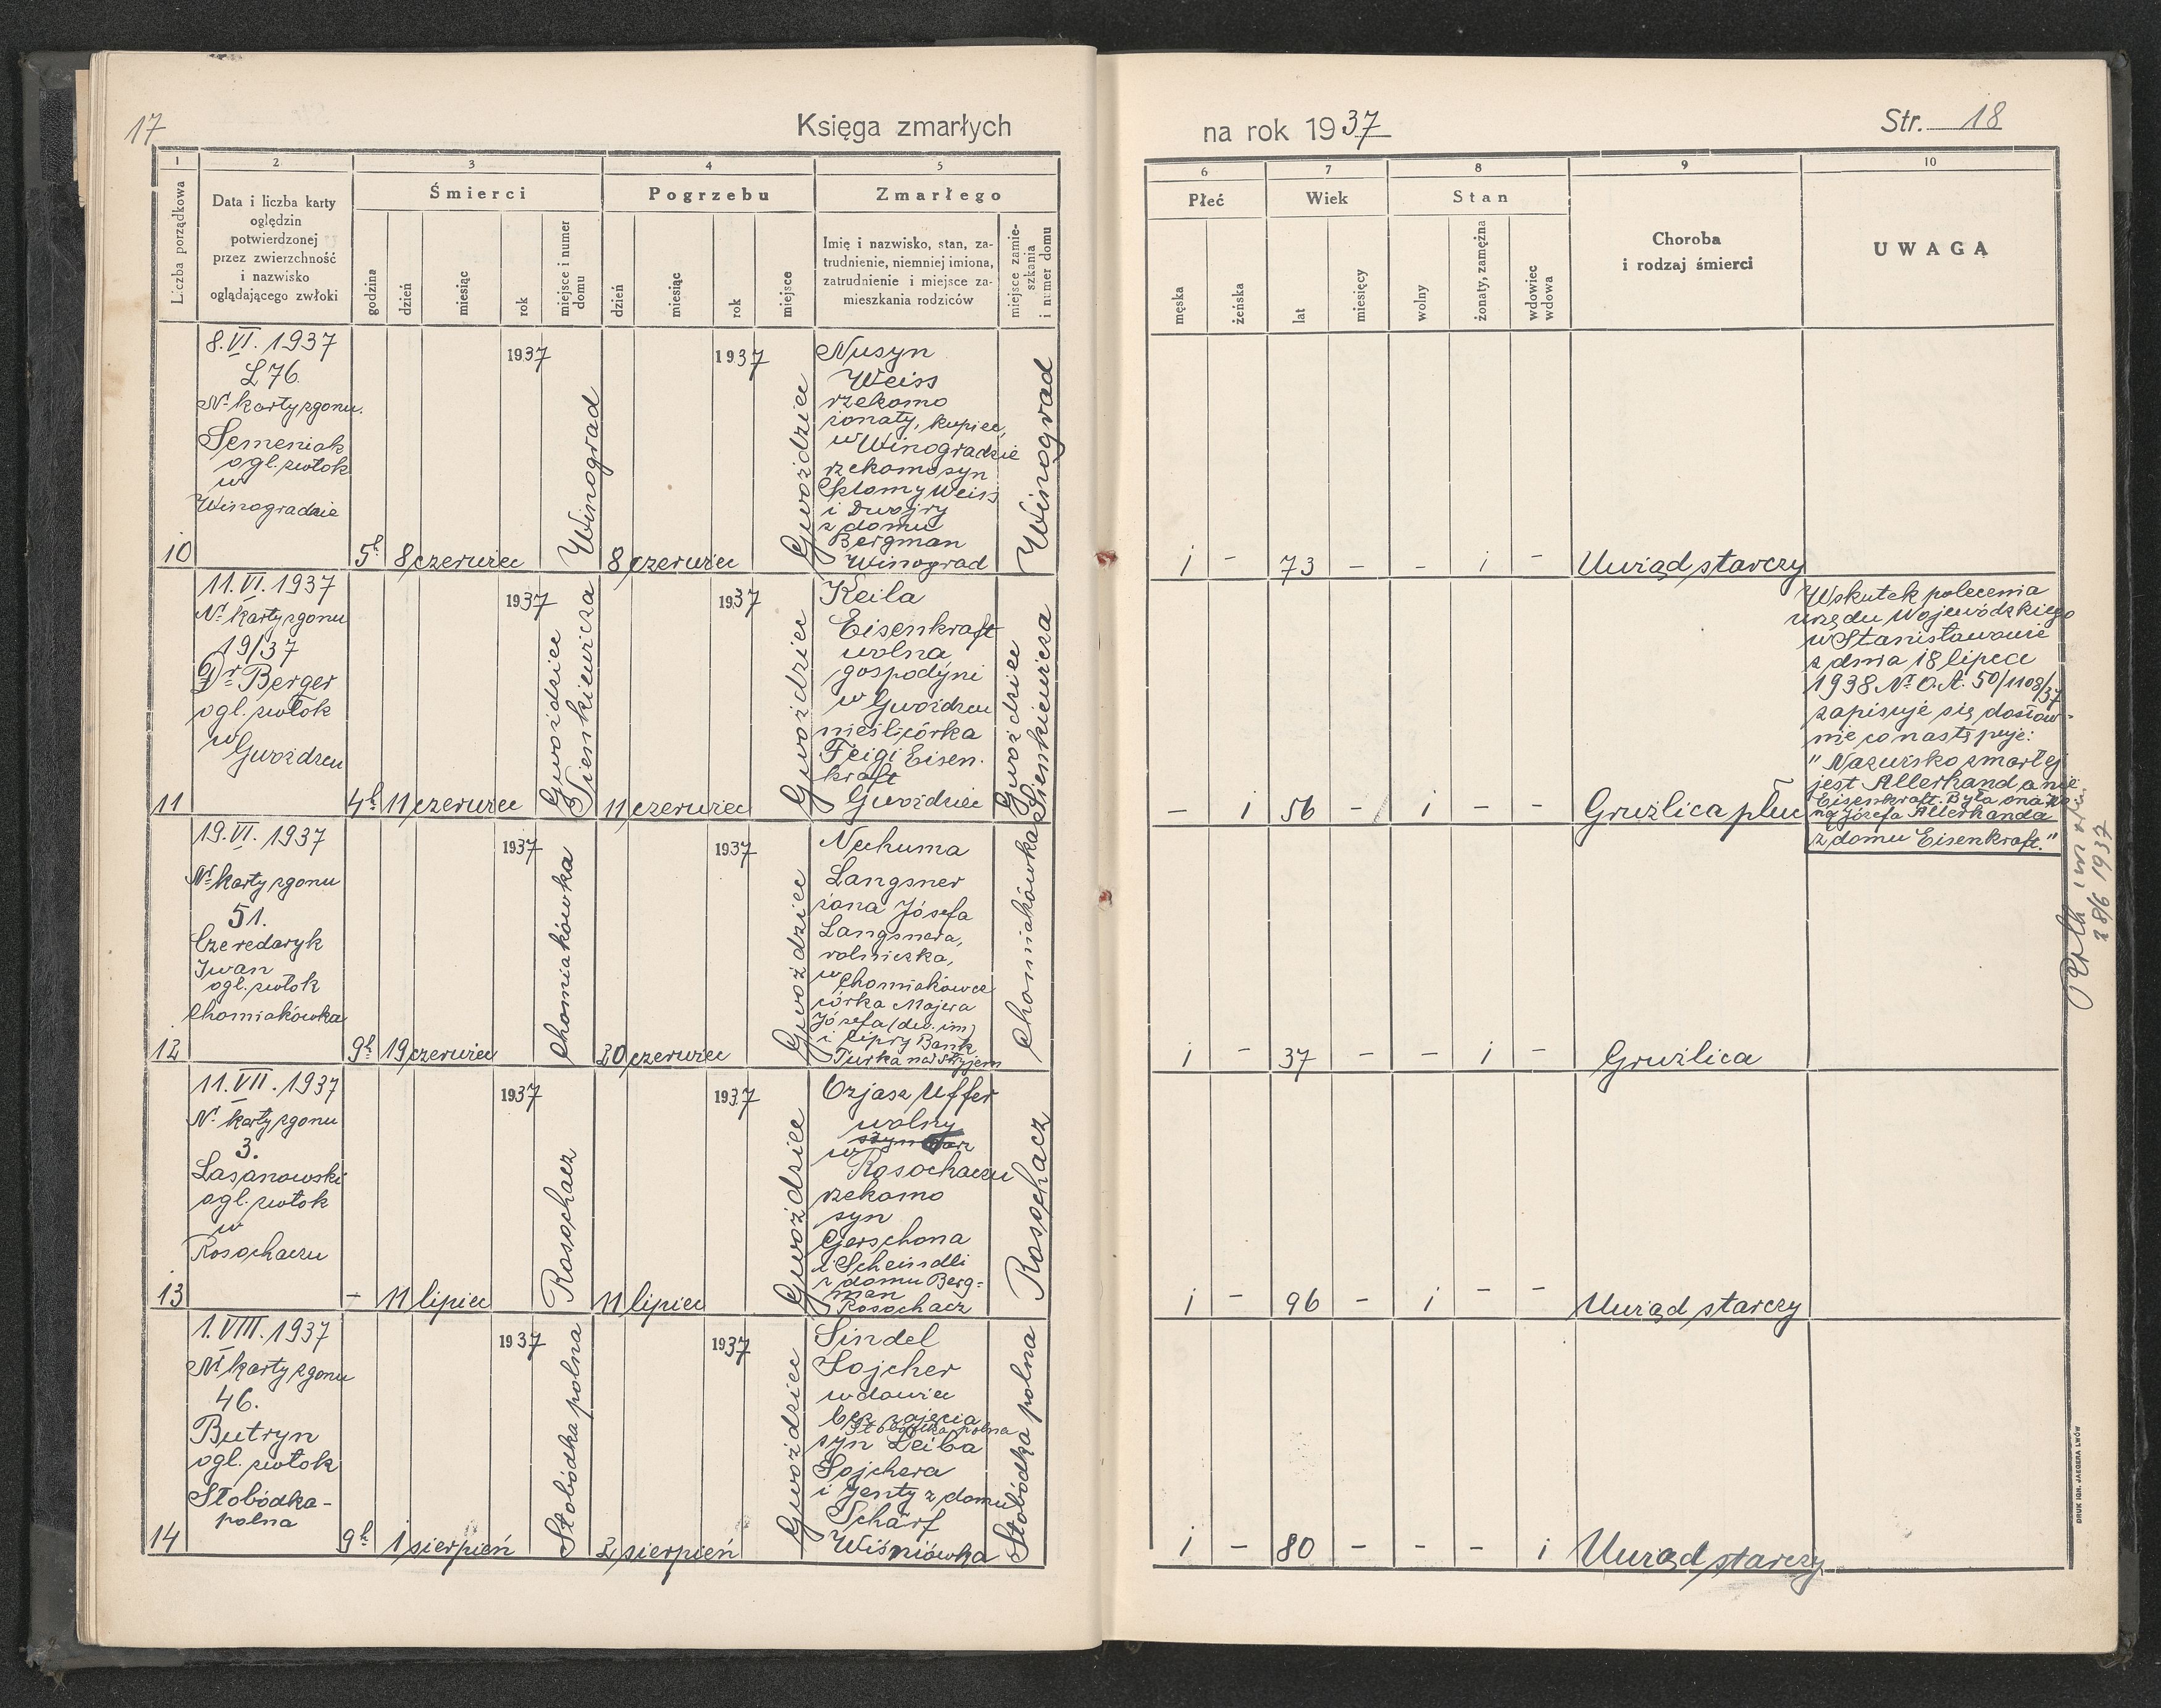 17
Księga zmarłych
1
2
3
4
5
Liczba porządkowa
Data i liczba karty
oględzin
potwierdzonej
przez zwierzchność
i nazwisko
oglądającego zwłoki
Śmierci
godzina
dzień
miesiąc
rok
miejsce i numer
domu
Pogrzebu
dzień
miesiąc
rok
miejsce
Zmarłego
Imię i nazwisko, stan, za-
trudnienie, niemniej imiona,
zatrudnienie i miejsce za-
mieszkania rodziców
miejsce zamie-
szkania
i numer domu
10
8.VI.1937
L 76.
Nr karty zgonu.
Semeniak
ogl. zwłok
w
Winogradzie
5h
8 czerwiec
1937
Winograd
8 czerwiec
1937
Gwoździec
Nusyn
Weiss
rzekomo
żonaty, kupiec,
w Winogradzie
rzekomo syn
Szlomy Weiss
i Dwojry
z domu
Bergman
Winograd
Winograd
11
11.VI.1937
Nr karty zgonu
19/37
Dr Berger
ogl. zwłok
w
Gwoźdzcu
4h
11 czerwiec
1937
Gwoździec
Sienkiewicza
11 czerwiec
1937
Gwoździec
Keila
Eisenkraft
wolna
gospodyni
w Gwoźdzcu
nieśl. córka
Feigi Eisen-
kraft
Gwoździec
Gwoździec
Sienkiewicza
12
19.VI.1937
Nr karty zgonu
51.
Czeredaryk
Iwan
ogl. zwłok
Chomiakówka
9h
19 czerwiec
1937
Chomiakówka
20 czerwiec
1937
Gwoździec
Nechuma
Langsner
żona Józefa
Langsnera,
rolniczka,
w Chomiakówce
córka Majera
Józefa (dw. im)
i Cipry Bank
Turka nad Stryjem
Chomiakówka
13
11.VII.1937
Nr karty zgonu
3.
Lasanowski
ogl. zwłok
w
Rosochaczu
-
11 lipiec
1937
Rosochacz
11 lipiec
1937
Gwoździec
Ozjasz Uffer
wolny
w
Rosochaczu
rzekomo
syn
Gerschona
i Scheindli
z domu Berg=
man
Rosochacz
Rosochacz
14
1.VIII.1937
Nr karty zgonu
46.
Butryn
ogl. zwłok
Słobódka-
polna
9h
1 sierpień
1937
Słobódka polna
2 sierpień
1937
Gwoździec
Sindel
Sojcher
wdowiec
bez zajęcia
Słobódka polna
syn Leiba
Sojchera
i Jenty z domu
Schärf
Wiśniówka
Słobódka polna
na rok 1937
Str. 18
6
7
8
9
10
Płeć
męska
żeńska
Wiek
lat
miesięcy
Stan
wolny
żonaty, zamężna
wdowiec
wdowa
Choroba
i rodzaj śmierci
UWAGA
i - 73 - - i - Uwiąd starczy
- i 56 - i - - Gruźlica płuc
Wskutek polecenia
urzędu Wojewódzkiego
w Stanisławowie
z dnia 18 lipca
1938 Nr O.A. 50/1108/37
zapisuje się dosłow-
nie co następuje:
"Nazwisko zmarłej
jest Allerhand a nie
Eisenkraft. Była ona żo-
ną Józefa Allerhanda
z domu Eisenkraft."
i - 37 - - i - Gruźlica
28/6 1937
i - 96 - i - - Uwiąd starczy
i - 80 - - - i Uwiąd starczy
DRUK IGN. JAEGERA LWÓW